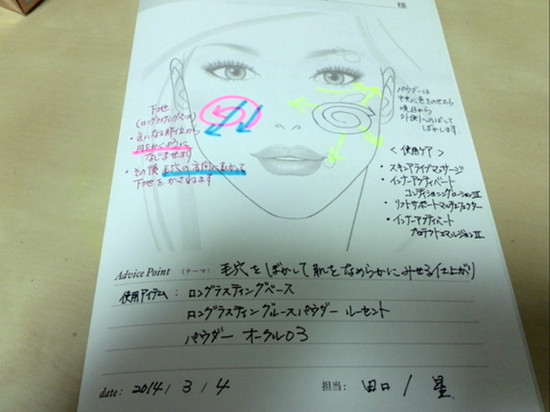 様
下地
(ロングラスティングベース)
・気になる部位から
円をかくように
なじませます
・その後 毛穴の方向にむかって
下地をかさねます
パウダーは
中央に色をのせたら
境目から
外側へのばして
ぼかします
<使用ケア>
・スキンアライブマッサージ
・インナーアクティベート
コンディショニングローションⅡ
・リフトサポートマッサージエフェクター
・インナーアクティベート
プロテクトエマルジョンⅡ
Advice Point (テーマ): 毛穴をぼかして肌をなめらかにみせる仕上がり
使用アイテム:ロングラスティングベース
ロングラスティングルースパウダー ルーセント
パウダー オークル03
date: 2014 / 3 / 4 担当: 田口 / 星